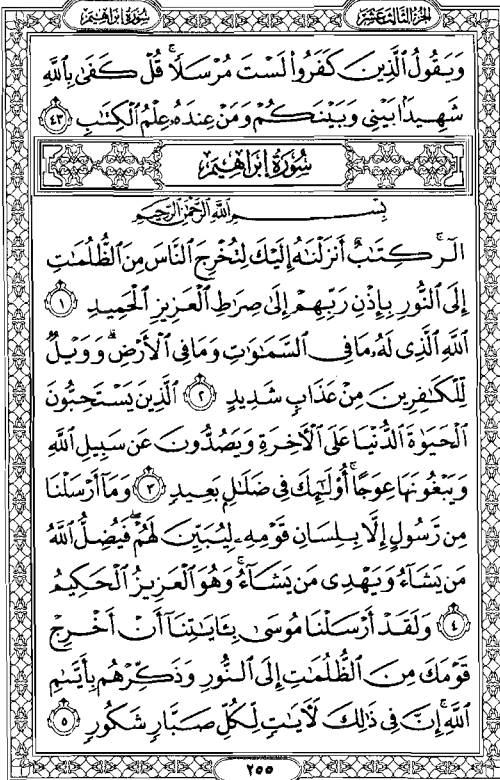 سُورَةُ إِبْرَاهِيم
الجُزْءُ الثَّالِثَ عَشَرَ
وَيَقُولُ الَّذِينَ كَفَرُوا۟ لَسْتَ مُرْسَلًا ۚ قُلْ كَفَىٰ بِاللَّهِ
شَهِيدًۢا بَيْنِى وَبَيْنَكُمْ وَمَنْ عِندَهُۥ عِلْمُ الْكِتَٰبِ ٤٣
سُورَةُ إِبْرَاهِيم
بِسْمِ اللَّهِ الرَّحْمَٰنِ الرَّحِيمِ
الٓر ۚ كِتَٰبٌ أَنزَلْنَٰهُ إِلَيْكَ لِتُخْرِجَ النَّاسَ مِنَ الظُّلُمَٰتِ
إِلَى النُّورِ بِإِذْنِ رَبِّهِمْ إِلَىٰ صِرَٰطِ الْعَزِيزِ الْحَمِيدِ ١
اللَّهِ الَّذِى لَهُۥ مَا فِى السَّمَٰوَٰتِ وَمَا فِى الْأَرْضِ ۗ وَوَيْلٌ
لِّلْكَٰفِرِينَ مِنْ عَذَابٍ شَدِيدٍ ٢ الَّذِينَ يَسْتَحِبُّونَ
الْحَيَوٰةَ الدُّنْيَا عَلَى الْءَاخِرَةِ وَيَصُدُّونَ عَن سَبِيلِ اللَّهِ
وَيَبْغُونَهَا عِوَجًا ۚ أُو۟لَٰٓئِكَ فِى ضَلَٰلٍۭ بَعِيدٍ ٣ وَمَآ أَرْسَلْنَا
مِن رَّسُولٍ إِلَّا بِلِسَانِ قَوْمِهِۦ لِيُبَيِّنَ لَهُمْ ۖ فَيُضِلُّ اللَّهُ
مَن يَشَآءُ وَيَهْدِى مَن يَشَآءُ ۚ وَهُوَ الْعَزِيزُ الْحَكِيمُ
٤ وَلَقَدْ أَرْسَلْنَا مُوسَىٰ بِـَٔايَٰتِنَآ أَنْ أَخْرِجْ
قَوْمَكَ مِنَ الظُّلُمَٰتِ إِلَى النُّورِ وَذَكِّرْهُم بِأَيَّىٰمِ
اللَّهِ ۚ إِنَّ فِى ذَٰلِكَ لَءَايَٰتٍ لِّكُلِّ صَبَّارٍ شَكُورٍ ٥
٢٥٥